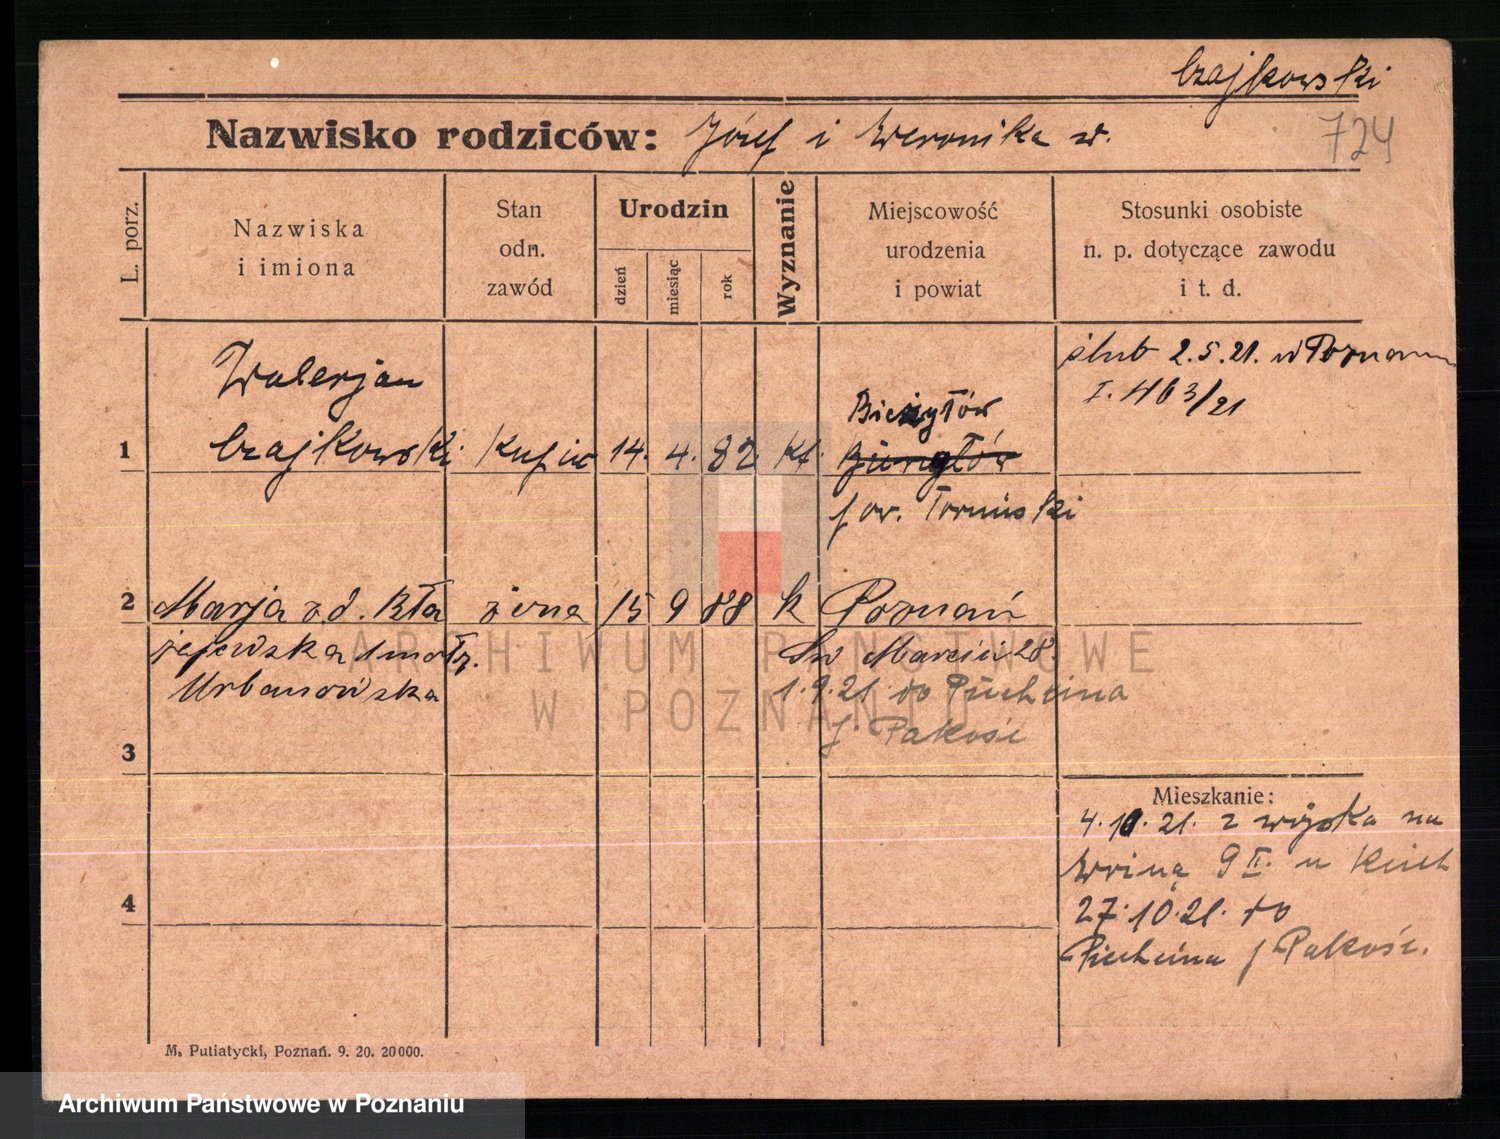 Czajkowski
Nazwisko rodziców: Józef i Weronika w.
724
L. porz.
Nazwiska
i imiona
Stan
odn.
zawód
Urodzin
dzień
miesiąc
rok
Wyznanie
Miejscowość
urodzenia
i powiat
Stosunki osobiste
n. p. dotyczące zawodu
i t. d.
ślub 2.5.21. w Poznaniu
I. 463/21
Walerjan
Bierzgłów
1 Czajkowski Kupiec 14. 4. 82 kt.
pow. Toruński
2 Marja z d. Bła żona 15 9 88 k Poznań
żejewska 1 małż.
Św Marcin 28.
Urbanowska
1.9.21 do Piechcina
p. Pakość
3
Mieszkanie:
4.10.21. z wojska na
9 II. u
27.10.21. do
4
Piechcina p Pakość.
M. Putiatycki, Poznań. 9. 20. 20000.
ARCHIWUM PAŃSTWOWE
W POZNANIU
Archiwum Państwowe w Poznaniu